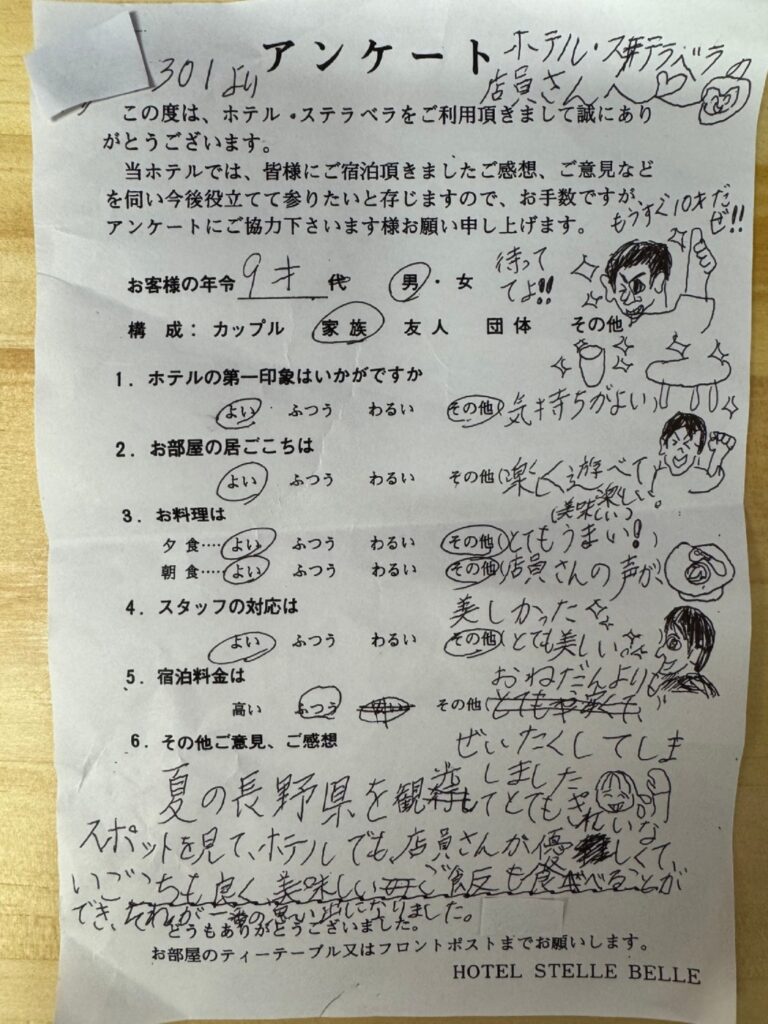 301より アンケート ホテル・ステラベラ
店員さんへ
この度は、ホテル・ステラベラをご利用頂きまして誠にあり
がとうございます。
当ホテルでは、皆様にご宿泊頂きましたご感想、ご意見など
を伺い今後役立てて参りたいと存じますので、お手数ですが、
アンケートにご協力下さいます様お願い申し上げます。
もうすぐ10才だ
ぜ!!
お客様の年令 9才 代 男・女
待って
てよ!!
構成: カップル 家族 友人 団体 その他
1. ホテルの第一印象はいかがですか
よい ふつう わるい その他(気持ちがよい)
2. お部屋の居ごこちは
よい ふつう わるい その他(楽しく遊べて
楽しい。
3. お料理は
(美味しい)
夕食‥‥よい ふつう わるい その他(とてもうまい!)
朝食‥‥よい ふつう わるい その他(店員さんの声が、
美しかった
4. スタッフの対応は
よい ふつう わるい その他(とても美しい。
5. 宿泊料金は
おねだんよりも
高い ふつう 安い その他(とても安くて、
ぜいたくしてしま
6. その他ご意見、ご感想
しました
夏の長野県を観 してとてもきれいな
スポットを見て、ホテルでも、店員さんが優しくて、
いごこちも良く、美味しいご飯も食べることが
でき、それが一番の思い出になりました。
どうもありがとうございました。
お部屋のティーテーブル又はフロントポストまでお願いします。
HOTEL STELLE BELLE